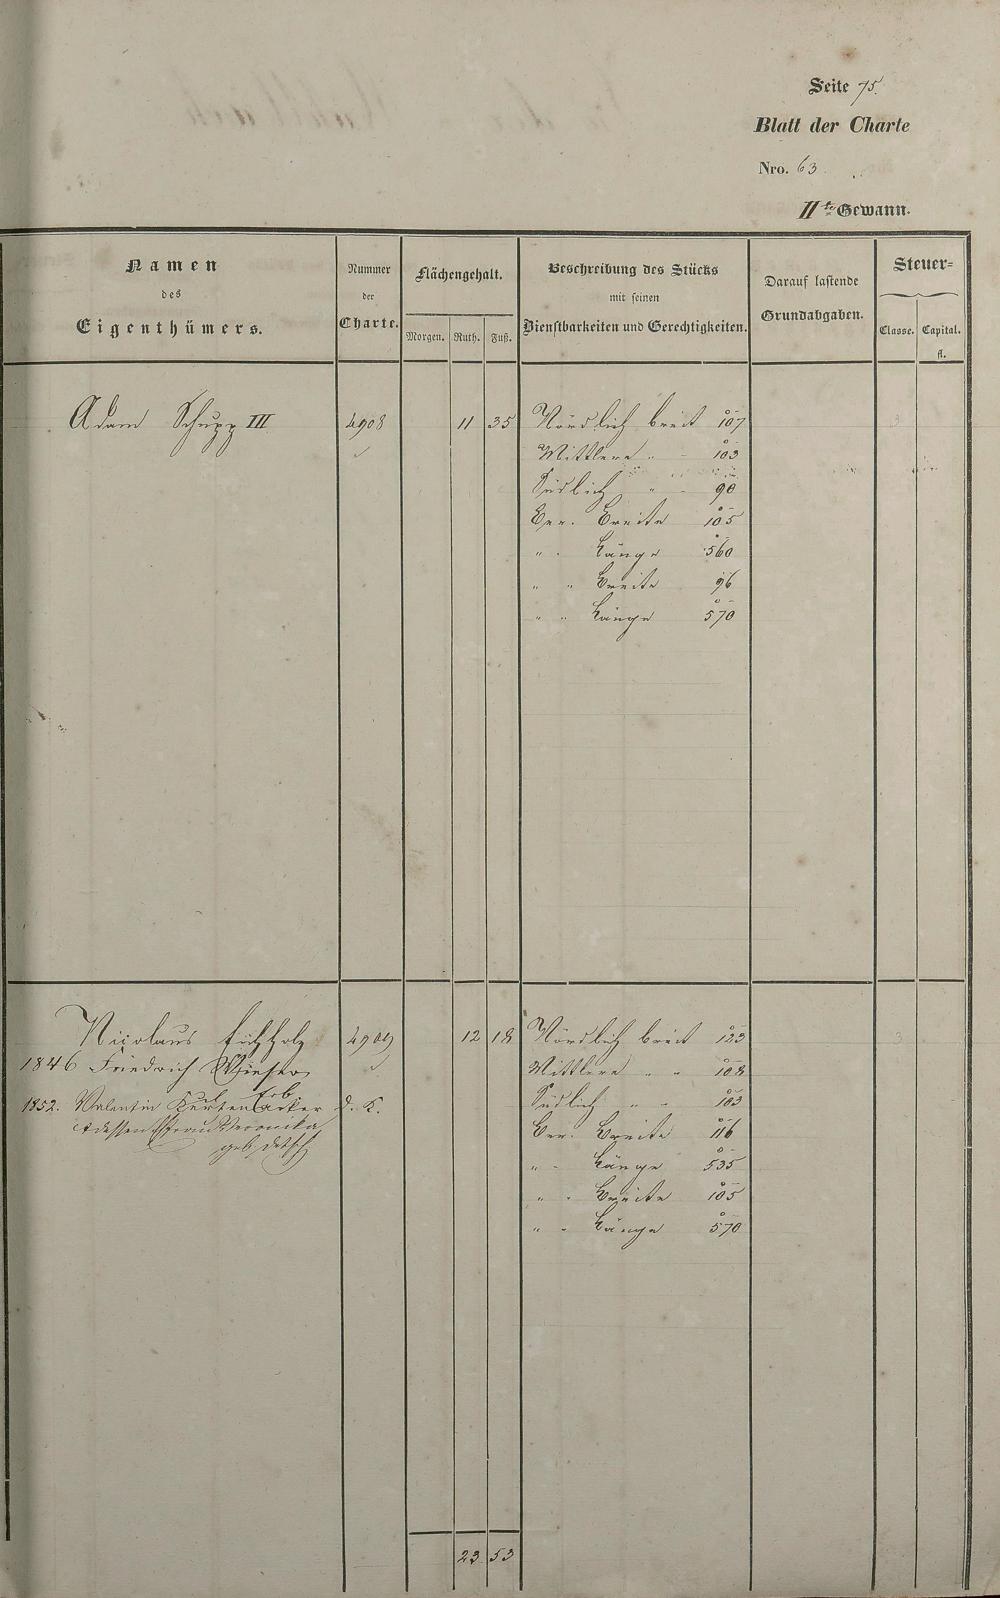 Seite 75.
Blatt der Charte
Nro. 63
IIte Gewann.
Namen
des
Eigenthümers.
Nummer
der
Charte.
Flächengehalt.
Morgen. Ruth. Fuß.
Beschreibung des Stücks
mit seinen
Dienstbarkeiten und Gerechtigkeiten.
Darauf lastende
Grundabgaben.
Steuer=
Classe. Capital.
fl.
Adam Schupp III 4908 11 35 Nördlich breit 107 3
Mittlere " - 103
Südlich " - 90
Ber. Breite 105
" " Länge 560
" " Breite 96
" " Länge 570
Nicolaus Eichholz 4909 12 18 Nördlich breit 123 3
1846 Friedrich Mittlere " " 108
1852. Valentin d. K. Südlich " " 103
& dessen Frau Veronika Ber. Breite 116
geb.
" " Länge 535
" " Breite 105
" " Länge 570
23 53